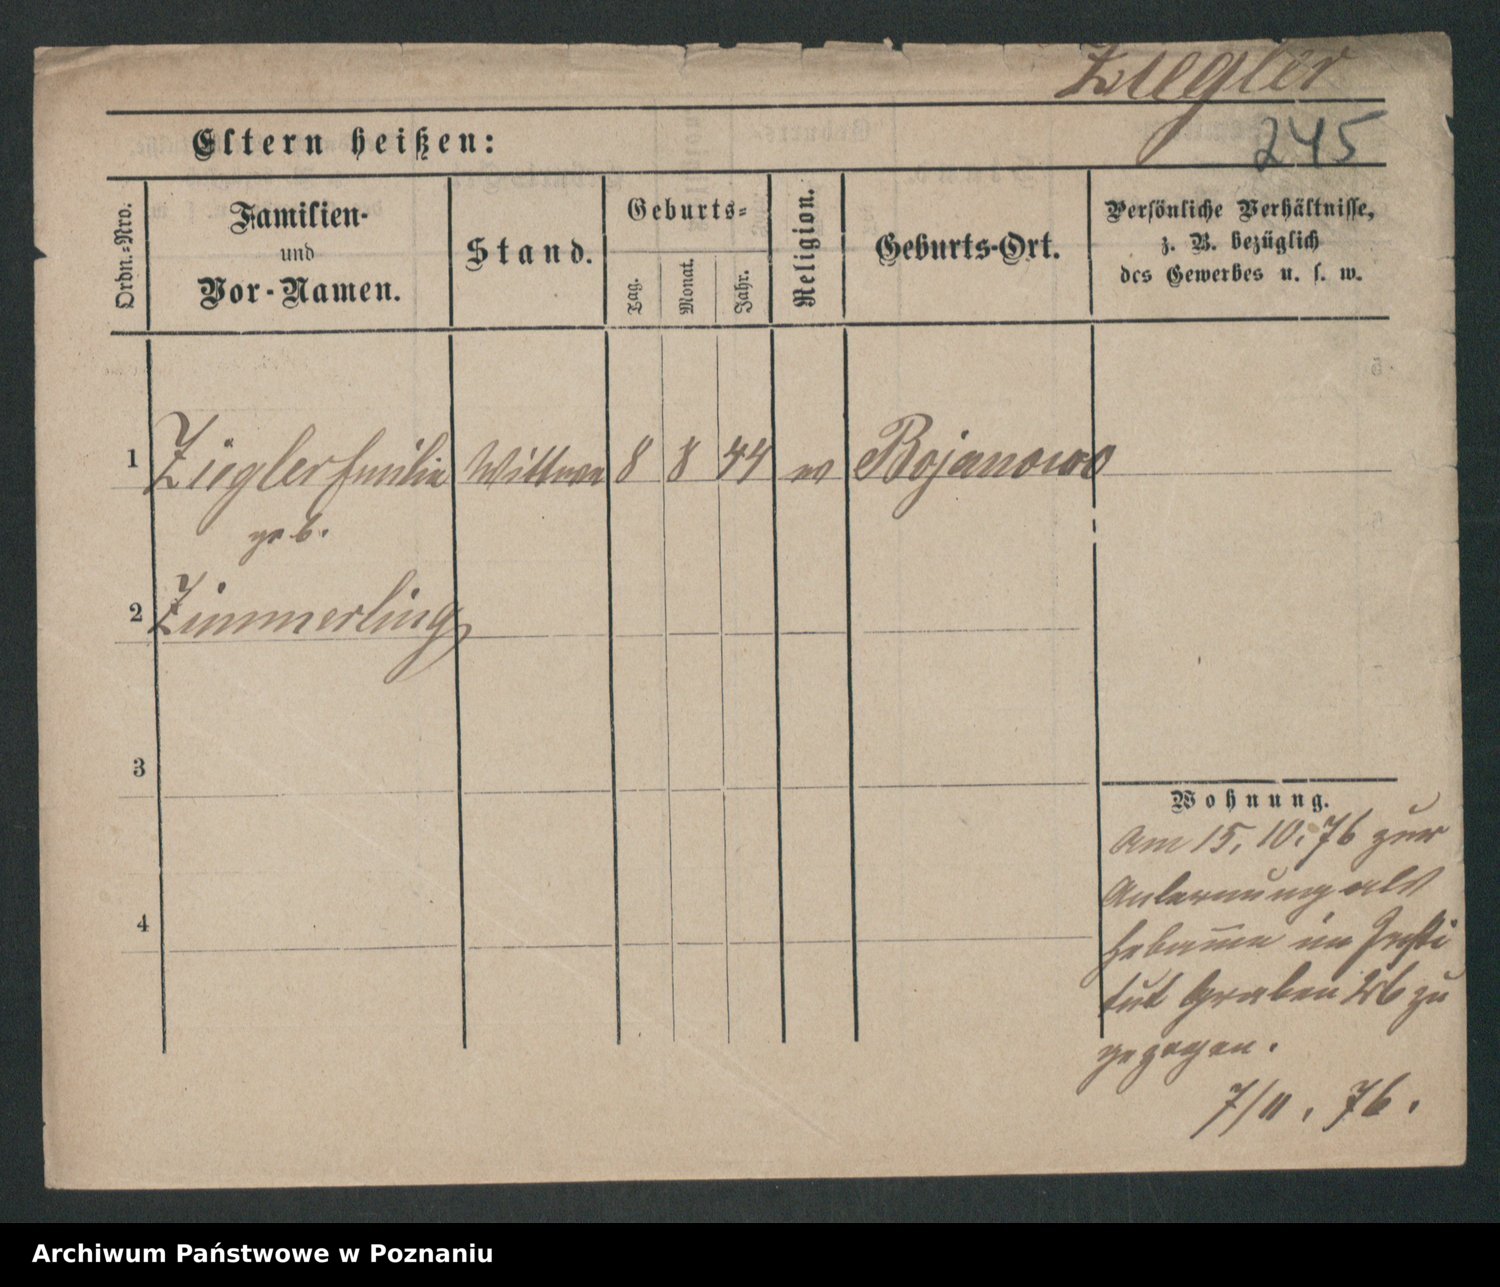 Ziegler
245
Eltern heißen:
Ordn.=Nro.
Familien-
und
Vor-Namen.
Stand.
Geburts=
Tag.
Monat.
Jahr.
Religion.
Geburts-Ort.
Persönliche Verhältnisse,
z. B. bezüglich
des Gewerbes u. s. w.
1 Ziegler Emilie Wittwe 8 8 44 ev Bojanowo
geb.
2 Zimmerling
3
4
Wohnung.
Am 15. 10. 76 zur
Anlernung als
Hebamme im Insti
tut Graben 26 zu
gezogen.
7/11. 76.
Archiwum Państwowe w Poznaniu